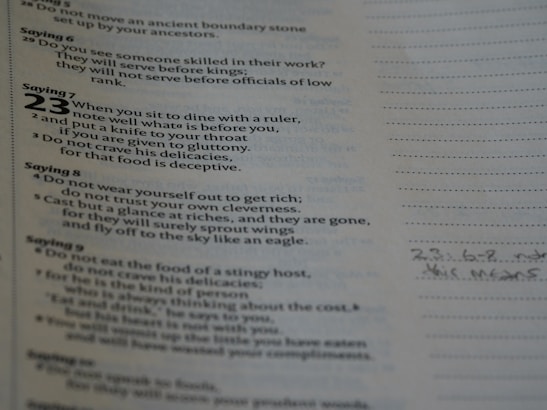 28 Do not move an ancient boundary stone
set up by your ancestors.
Saying 6
29 Do you see someone skilled in their work?
They will serve before kings;
they will not serve before officials of low
rank.
Saying 7
23 When you sit to dine with a ruler,
note well what a is before you,
2 and put a knife to your throat
if you are given to gluttony.
3 Do not crave his delicacies,
for that food is deceptive.
Saying 8
4 Do not wear yourself out to get rich;
do not trust your own cleverness.
5 Cast but a glance at riches, and they are gone,
for they will surely sprout wings
and fly off to the sky like an eagle.
Saying 9
6 Do not eat the food of a stingy host,
do not crave his delicacies;
7 for he is the kind of person
who is always thinking about the cost. b
"Eat and drink," he says to you,
but his heart is not with you.
8 You will vomit up the little you have eaten
and will have wasted your compliments.
Saying 10
9 Do not speak to fools,
for they will scorn your prudent words.
23: 6-8
this means